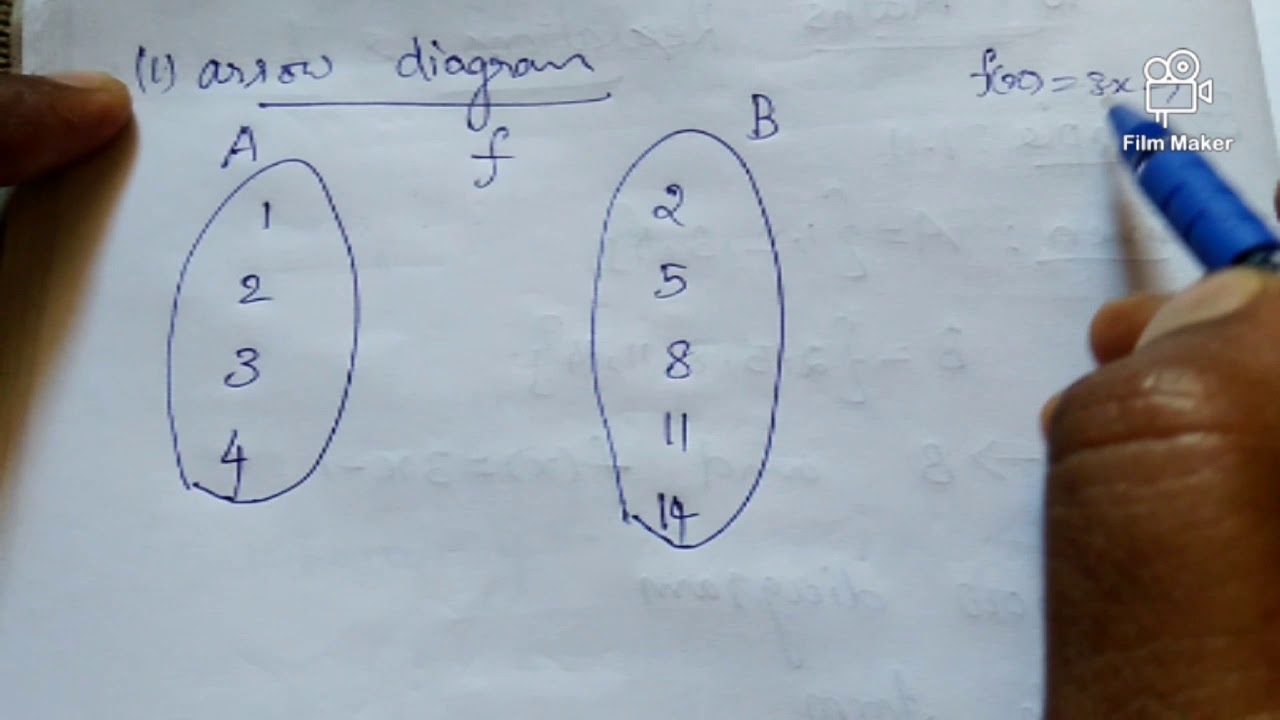 (i) arrow diagram
f(x) = 3x
Film Maker
A f B
1 2
2 5
3 8
4 11
14